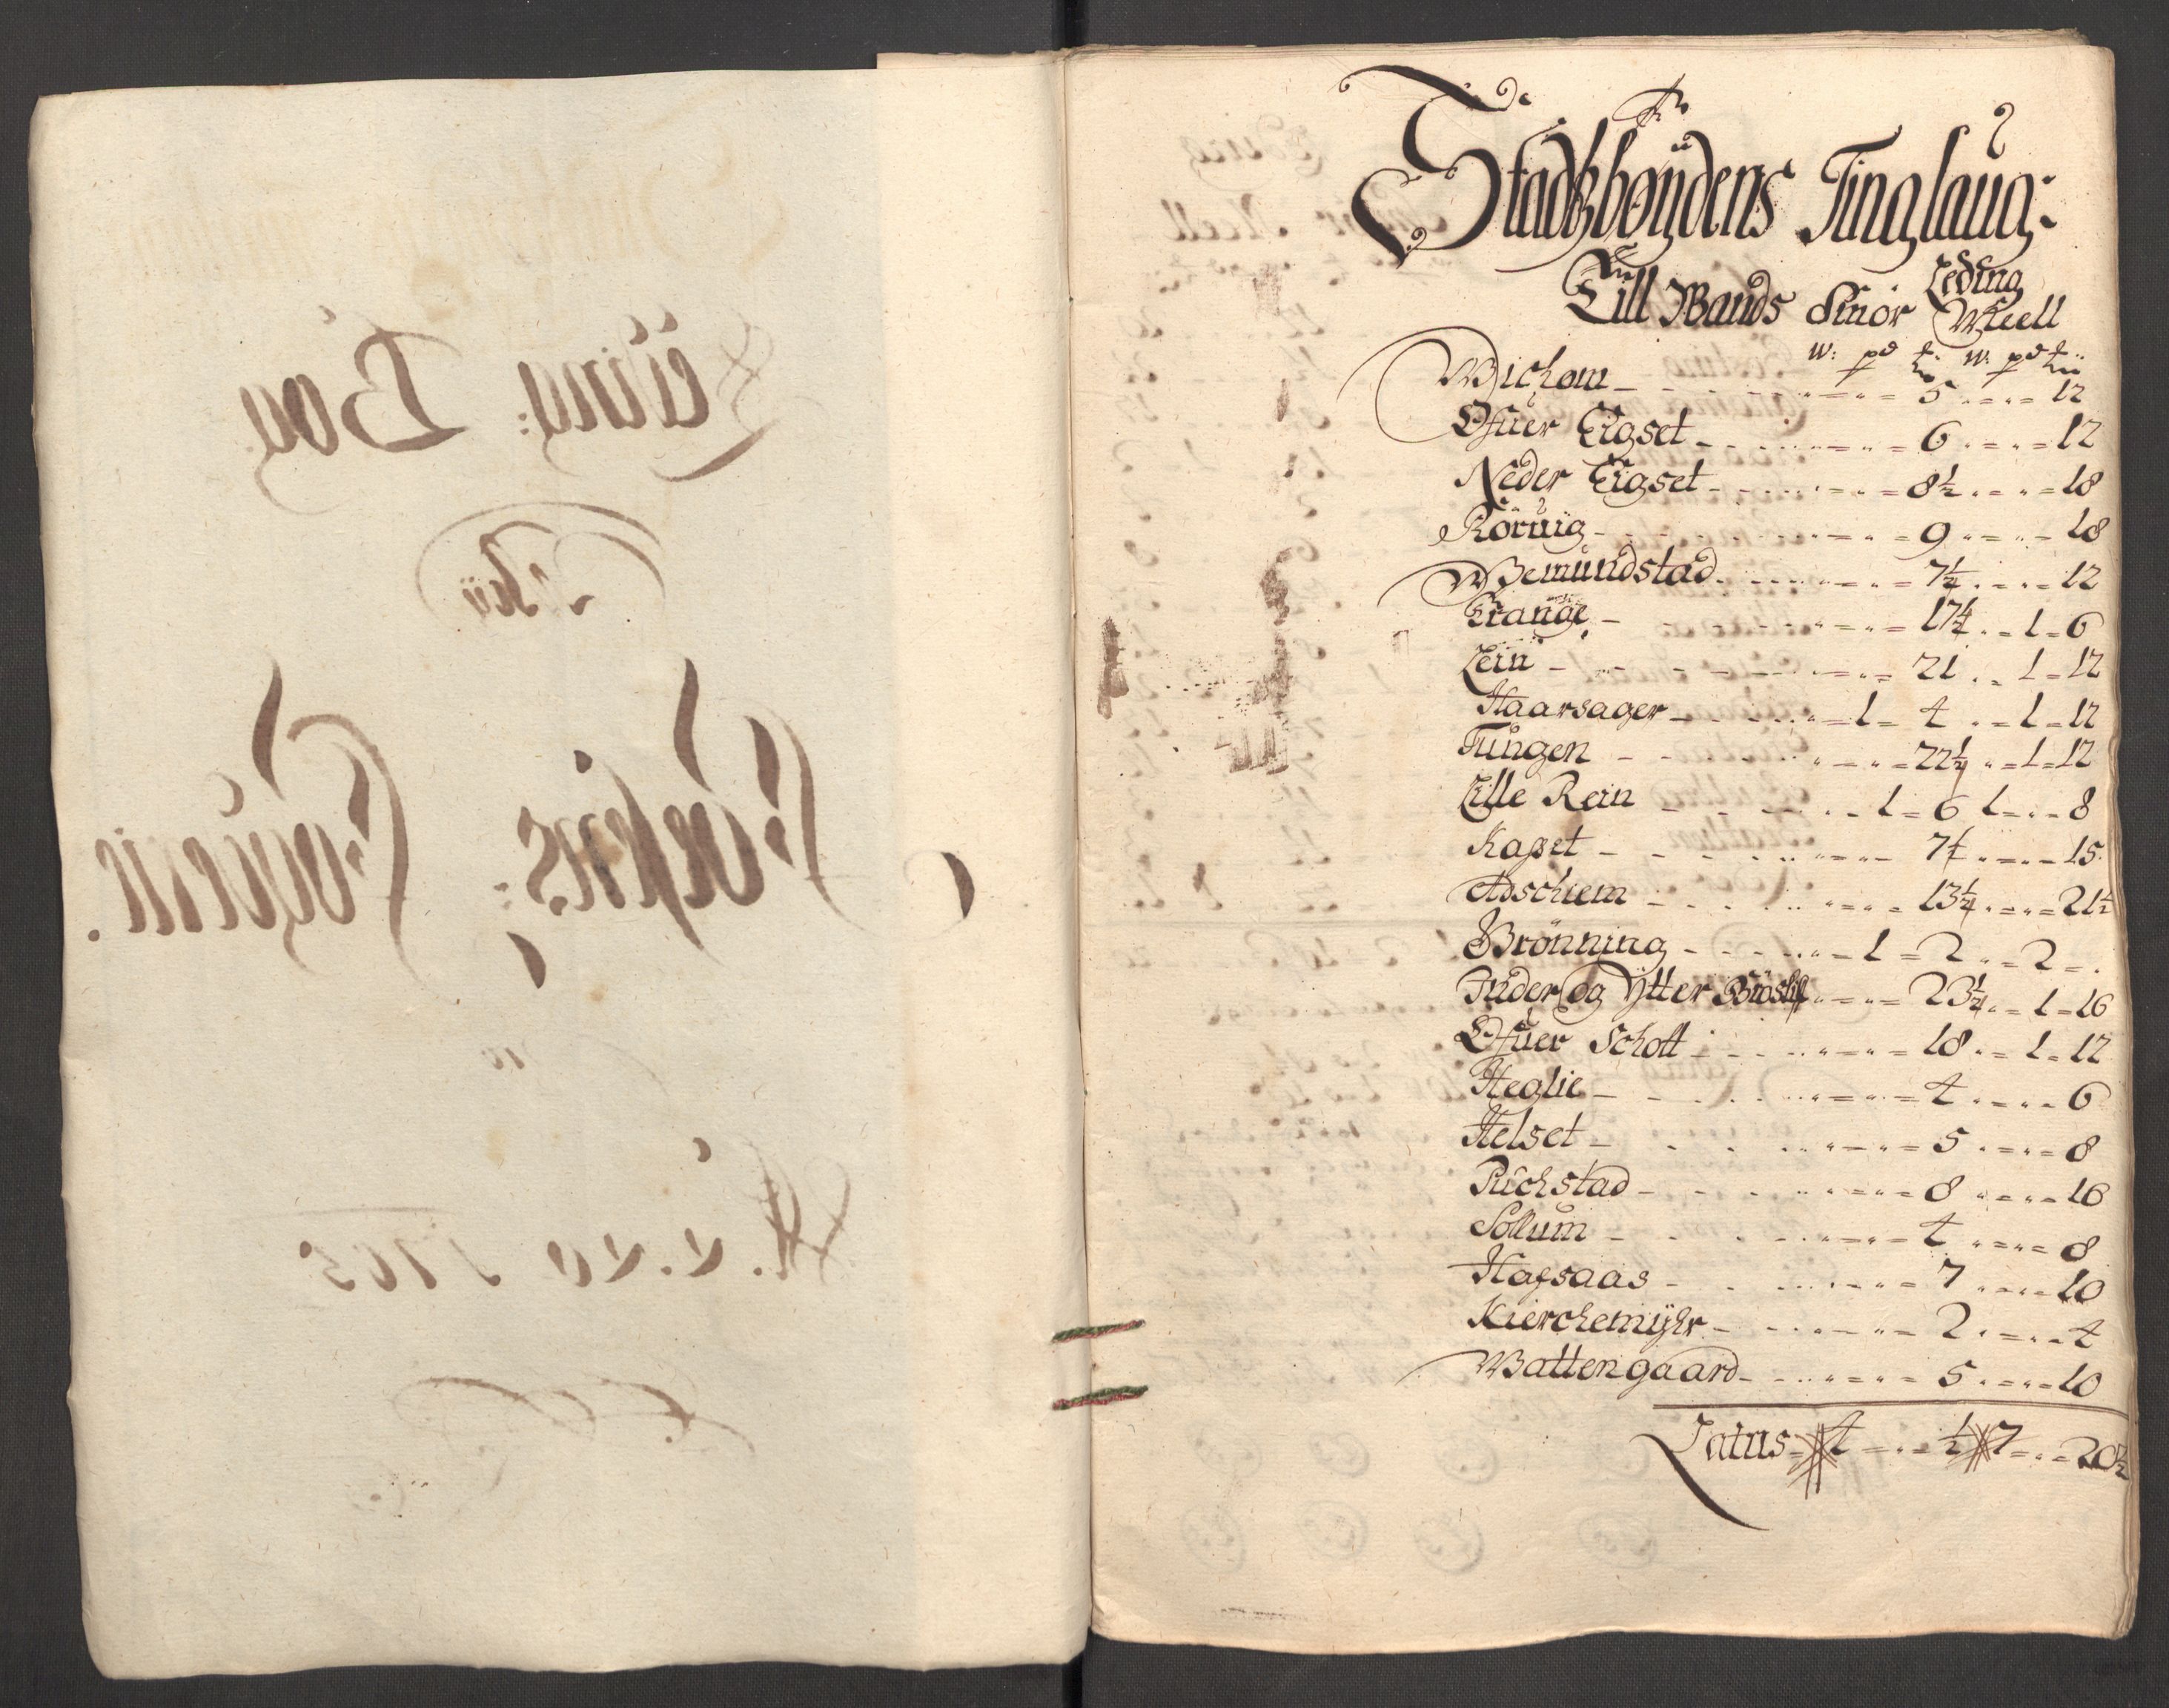 Leding Bog
Fosens Fogderie
Pro
Anno 1705
Stadtzbøÿdens Tinglaug:
Leding
Till Wands Smör Meell
W: pd t: W: pd t:
Wichom - - 5 - - 12
Ofuer Eigset - - 6 - - 12
Neder Eigset - - 8½ - - 18
Rörwig - - 9 - - 18
Wemundstad - - 7½ - - 12
Grande - - 17½ - 1 - 6
Lein - - 21 - 1 - 12
Haarsager - 1 - 4 - 1 - 12
Tungen - - 22½ - 1 - 12
Lille Rein - 1 - 6 1 - - 8
Kaßet - - 7½ - - 15
Askhiem - - 13½ - - 21½
Brönning - 1 - 2 - 2 -
Inder og Ytter - - 23½ - 1 - 16
Ofuer Schott - - 18 - 1 - 12
Heglie - - 4 - - 6
Helset - - 5 - - 8
Puchstad - - 8 - - 16
Sollum - - 4 - - 8
Hafsaas - - 7 - - 10
Kierchemÿhr - - 2 - - 4
Wattengaard - - 5 - - 10
Latus - 4 - - ½ 7 - - 20½